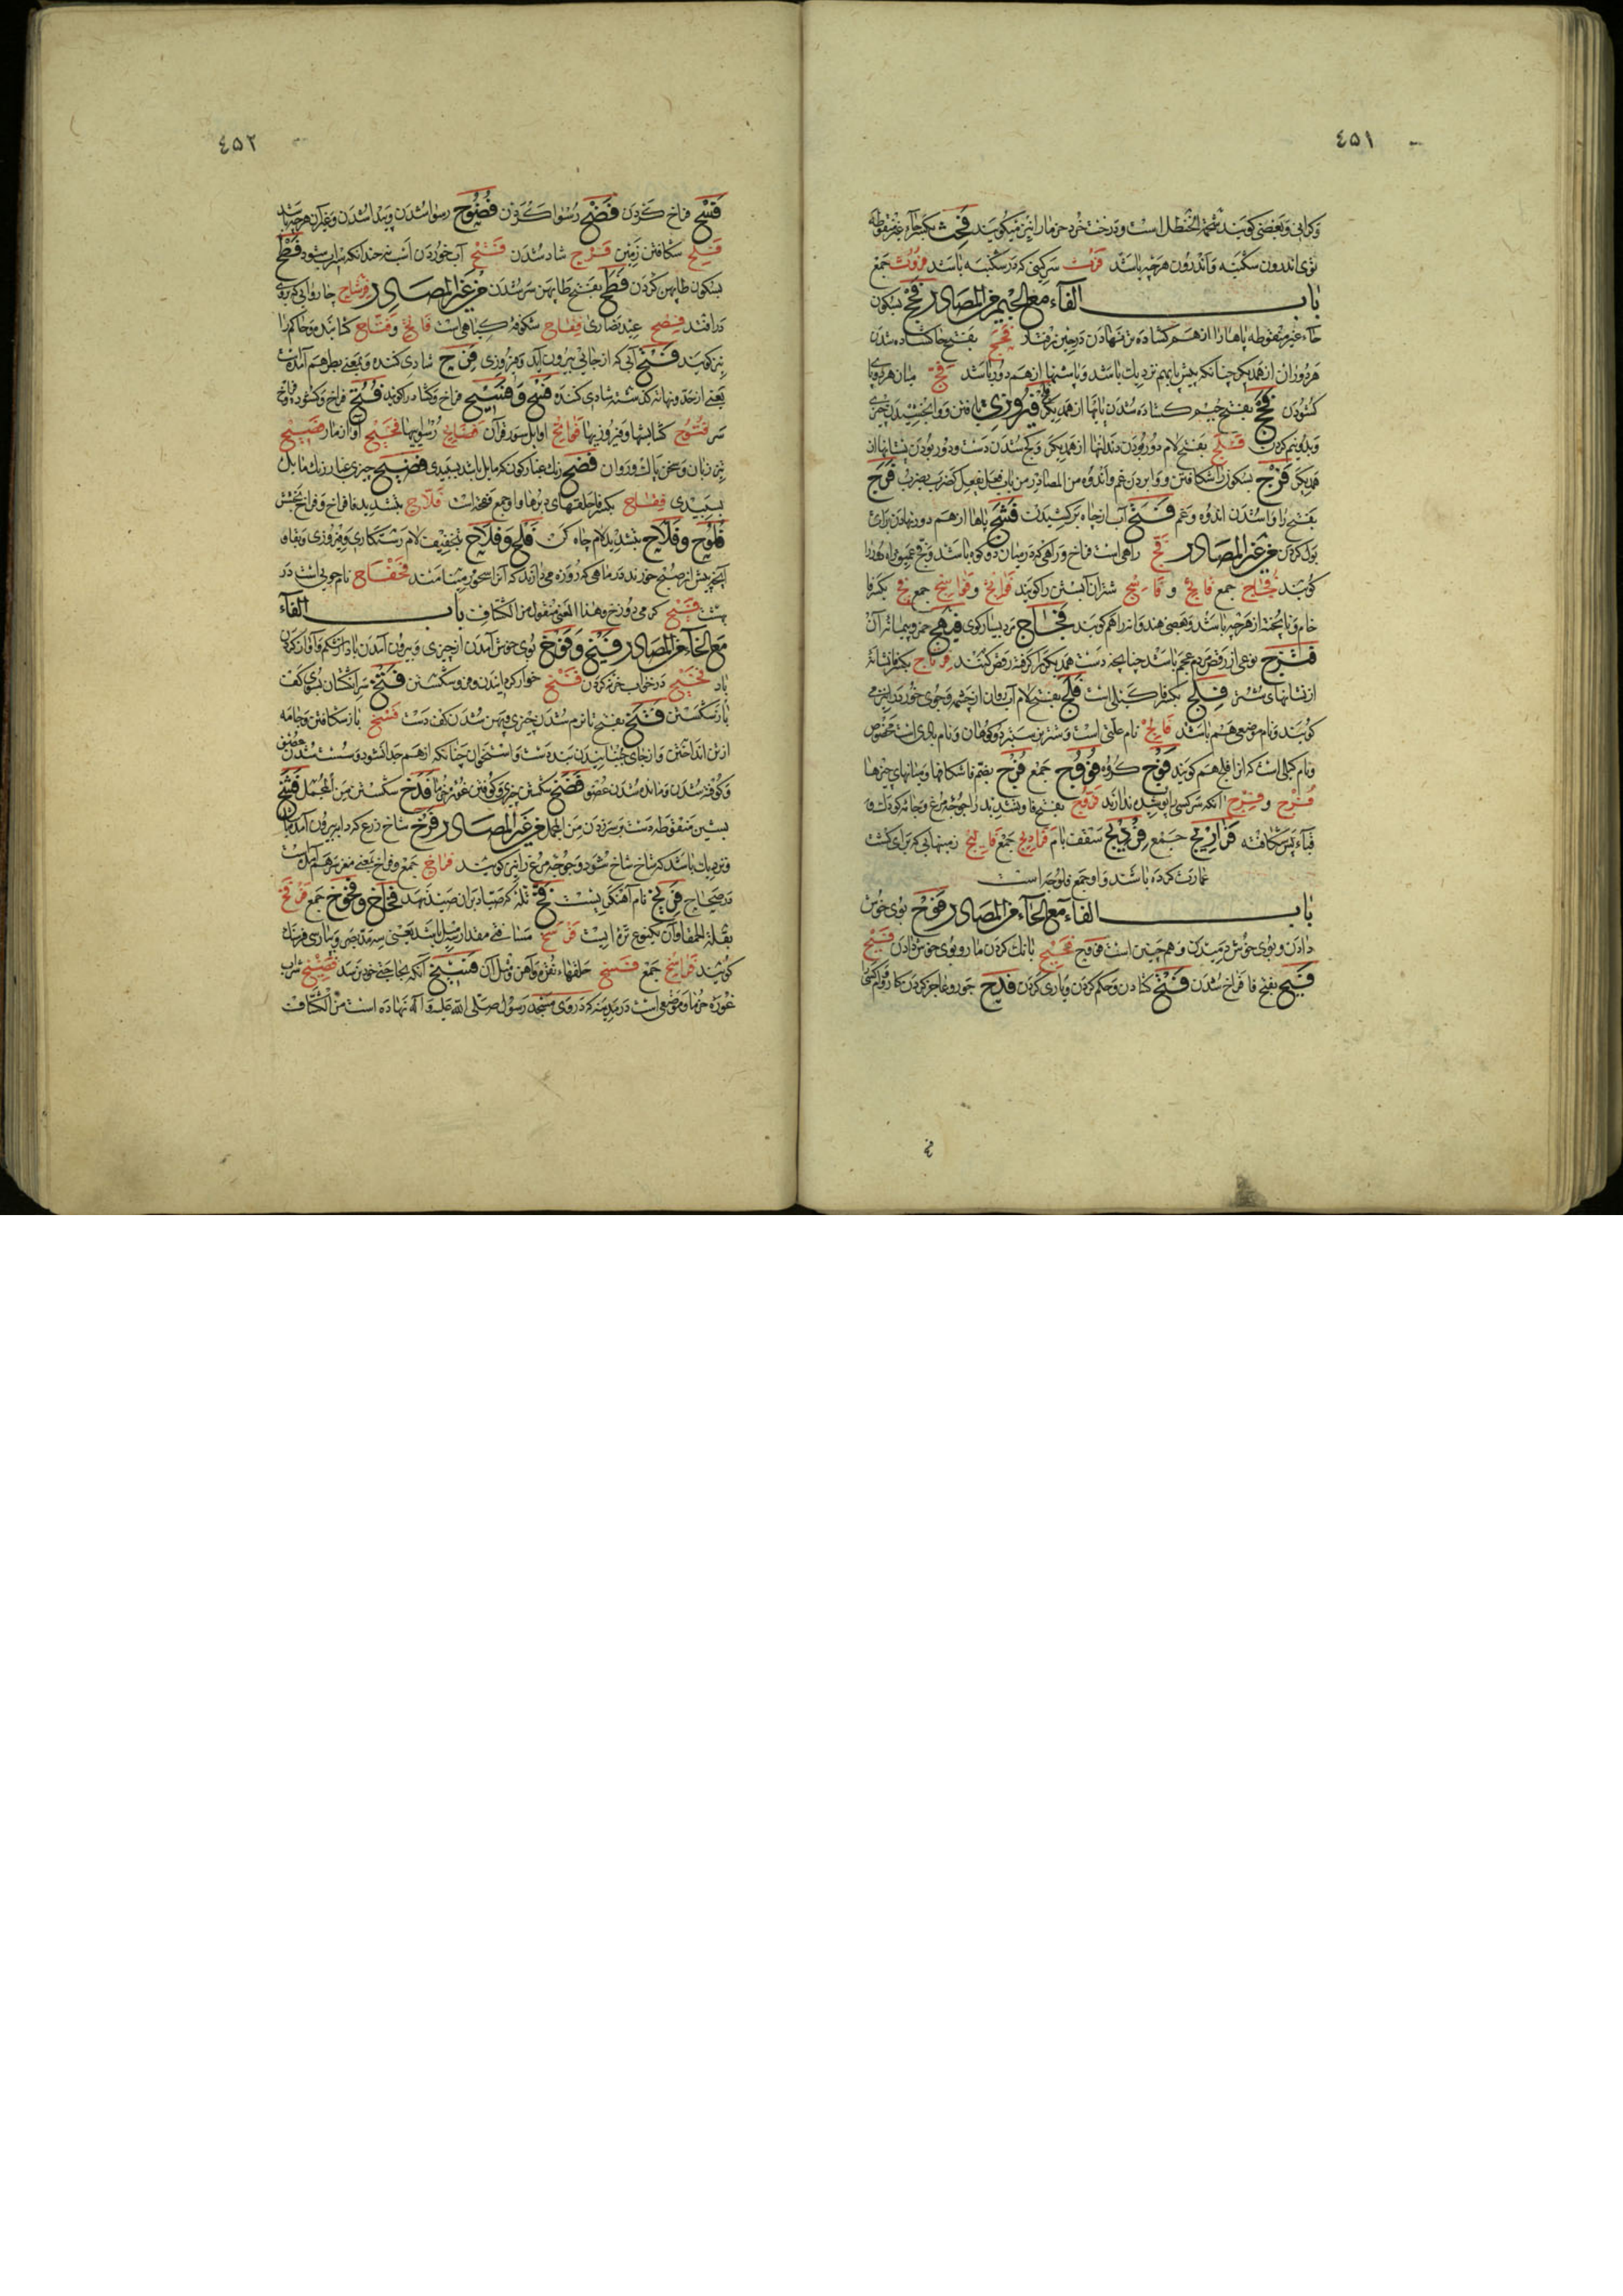 ٤٥١
وکرانی وبعضی کویند شحمة الحنظل است ودرخت خرد خرما را نیز میکویند فحث بکسر حآء غیر منقوطه
توی اندرون شکنبه واندرون هرچه باشد فرث سرکین که در شکنبه باشد فروث جمع
باب الفآء مع الجیم من المصادر فحج بسکون
حآء غیر منقوطه پاها را از هم کشاده تر نهادن در حین رفتار فحج بفتح حا کشاده شدن
هر دو ران از همدیکر چنانکه پیش پایهم نزدیك باشد وپاشنها از هم دور باشد فج میان هر دو پای
کشودن فجج بفتح جیم کشاده شدن پایها از همدیکر فلج فیروزی یافتن ووابخشیدن چیزی
وبدو نیم کردن فلج بفتح لام دور بودن دندانها از همدیکر وکج شدن دست ودور بودن پستانها از
همدیکر فرج بسکون را شکافتن ووابردن غم واندوه من المصادر من باب فعل یفعل کضرب یضرب فرج
بفتح را واشدن اندوه وغم فنج آب از چاه برکشیدن فشج پاها از هم دور نهادن برای
بول کردن من غیر المصادر فج راهی است فراخ وراهی که در میان دو کوه باشد
کویند فجاج جمع فایج و فاسج شتران آبستن را کویند فوایج و فواسج جمع فج بکسر فا
خام وناپخته از هرچه باشد وبعضی هندوانه را هم کویند فجاج
فنزج نوعی از رقص مردم عجم باشد چنانچه دست همدیکر را کرفته رقص کنند فرتاج بکسر فا نشانهٔ
از نشانهای شتر فلج بکسر فا کیلی است فلج بفتح لام آب روان از چشمه وجوی خورد را نیز می
کویند ونام موضعی هم باشد فالج نام علتی است وشتر بزرك دو کوهان ونام
ونام کیلی است که انرا فلج هم کویند فوج کروه فووج جمع فرج بضم فا شکافها ومیانهای چیزها
فرج و فرج انکه سر کسی را پوشیده ندارد فروج بفتح فا وتشدید را جوجه مرغ وجامه کودك و
قبآء پس شکافته فراریج جمع
عمارت کرده باشند واو جمع فلوجه است
باب الفآء مع الحآء من المصادر فوح بوی خوش
دادن وبوی خوش دمیدن وهم چنین است فووح فحیح بانك کردن مار وبوی خوش دادن فیح
فیح بفتح فا فراخ شدن فتح کشادن وحکم کردن ویاری کردن فدح جور وعاجز کردن
٤٥٢
فسح فراخ کردن فضح رسوا کردن فضوح رسوا شدن وپیدا شدن وغیر آن هرچه باشد
فلح شکافتن زمین فرح شاد شدن فتح آب خوردن اسب نه چندانکه سیراب شود فطح
بسکون طا پهن کردن فطح بفتح طا پهن سر شدن من غیر المصادر
در افتد فصح عید نصاری فقاح شکوفه کیاهی است فاتح وفتاح کشاینده وحاکم را
نیز کویند فتح آبی که از جائی بیرون آید وفیروزی فرح شادی کننده وبمعنی بطر هم آمده
یعنی از حد ونهایت کذشته شادی کننده فسح و فسیح فراخ وکشاد را کویند فتح فراخ وکشوده
سر فتوح کشایشها وفیروزیها فواتح اوایل سور قرآن فضایح رسوایها فحیح آواز مار فصیح
تیز زبان وسخن پاك وروان فضح رنك غبار کون که مایل باشد بسپیدی فضیح چیزی غبار رنك مایل
بسپیدی فقاح بکسر فا حلقهای دبرها واو جمع فقحه است فلاح بتشدید
فلوح وفلاح بتشدید لام چاه کن فلح وفلاح بتخفیف لام رستکاری وفیروزی وبقا و
آنچه پیش از صبح خورند در ماهی که روزه می دارند که آنرا سحور مینامند نام جوبی است در
بهشت فیح کرمی دوزخ وهذا المعنی منقول من الکشاف باب الفآء
مع الخآء من المصادر فیخ و فوخ بوی خوش آمدن از چیزی وبیرون آمدن باد از شکم وآواز کردن
باد فخیخ در خواب خرخر کردن فنخ خوار کردانیدن وفرو شکستن فتخ سر انکشتان بسوی کف
باز شکستن فتخ بفتح تا نرم شدن چیزی وپهن شدن کف دست فسخ باز شکافتن وجامه
از تن انداختن واز جای جنبانیدن بند دست واستخوان چنانکه از هم جدا نشود وسست شدن
وکوفته شدن ومانده شدن عضو فضخ شکستن چیزی وکوفتن غوره خرما فدخ شکستن من المجمل فشخ
بشین منقوطه دست بر سر زدن من المجمل من غیر المصادر فرخ شاخ زرع که
ونزدیك باشد که شاخ شاخ شود وجوجه مرغ را نیز کویند فراخ جمع وفراخ بمعنی مغز سر هم آمده است
در صحاح فریخ نام آهنکی یست فخ تله که صیاد بر آن صید نهد فخاخ وفخوخ جمع فرفخ
بقلة الحمقا وآن یکنوع تره ایست فرسخ مسافت مقدار سه میل باشد
کویند فراسخ جمع
غوره خرما وموضعی است در مدینه که در وی مسجد رسول صلی الله علیه وآله نهاده است من الکشاف